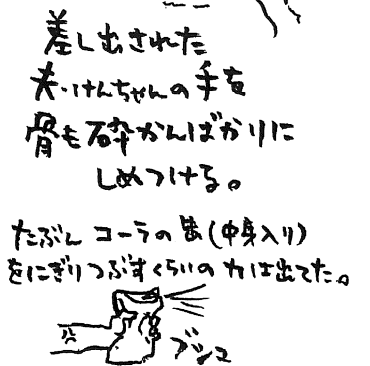 差し出された
夫・けんちゃんの手を
骨も砕かんばかりに
しめつける。
たぶん コーラの缶(中身入り)
をにぎりつぶすくらいの力は出てた。
ブシュ